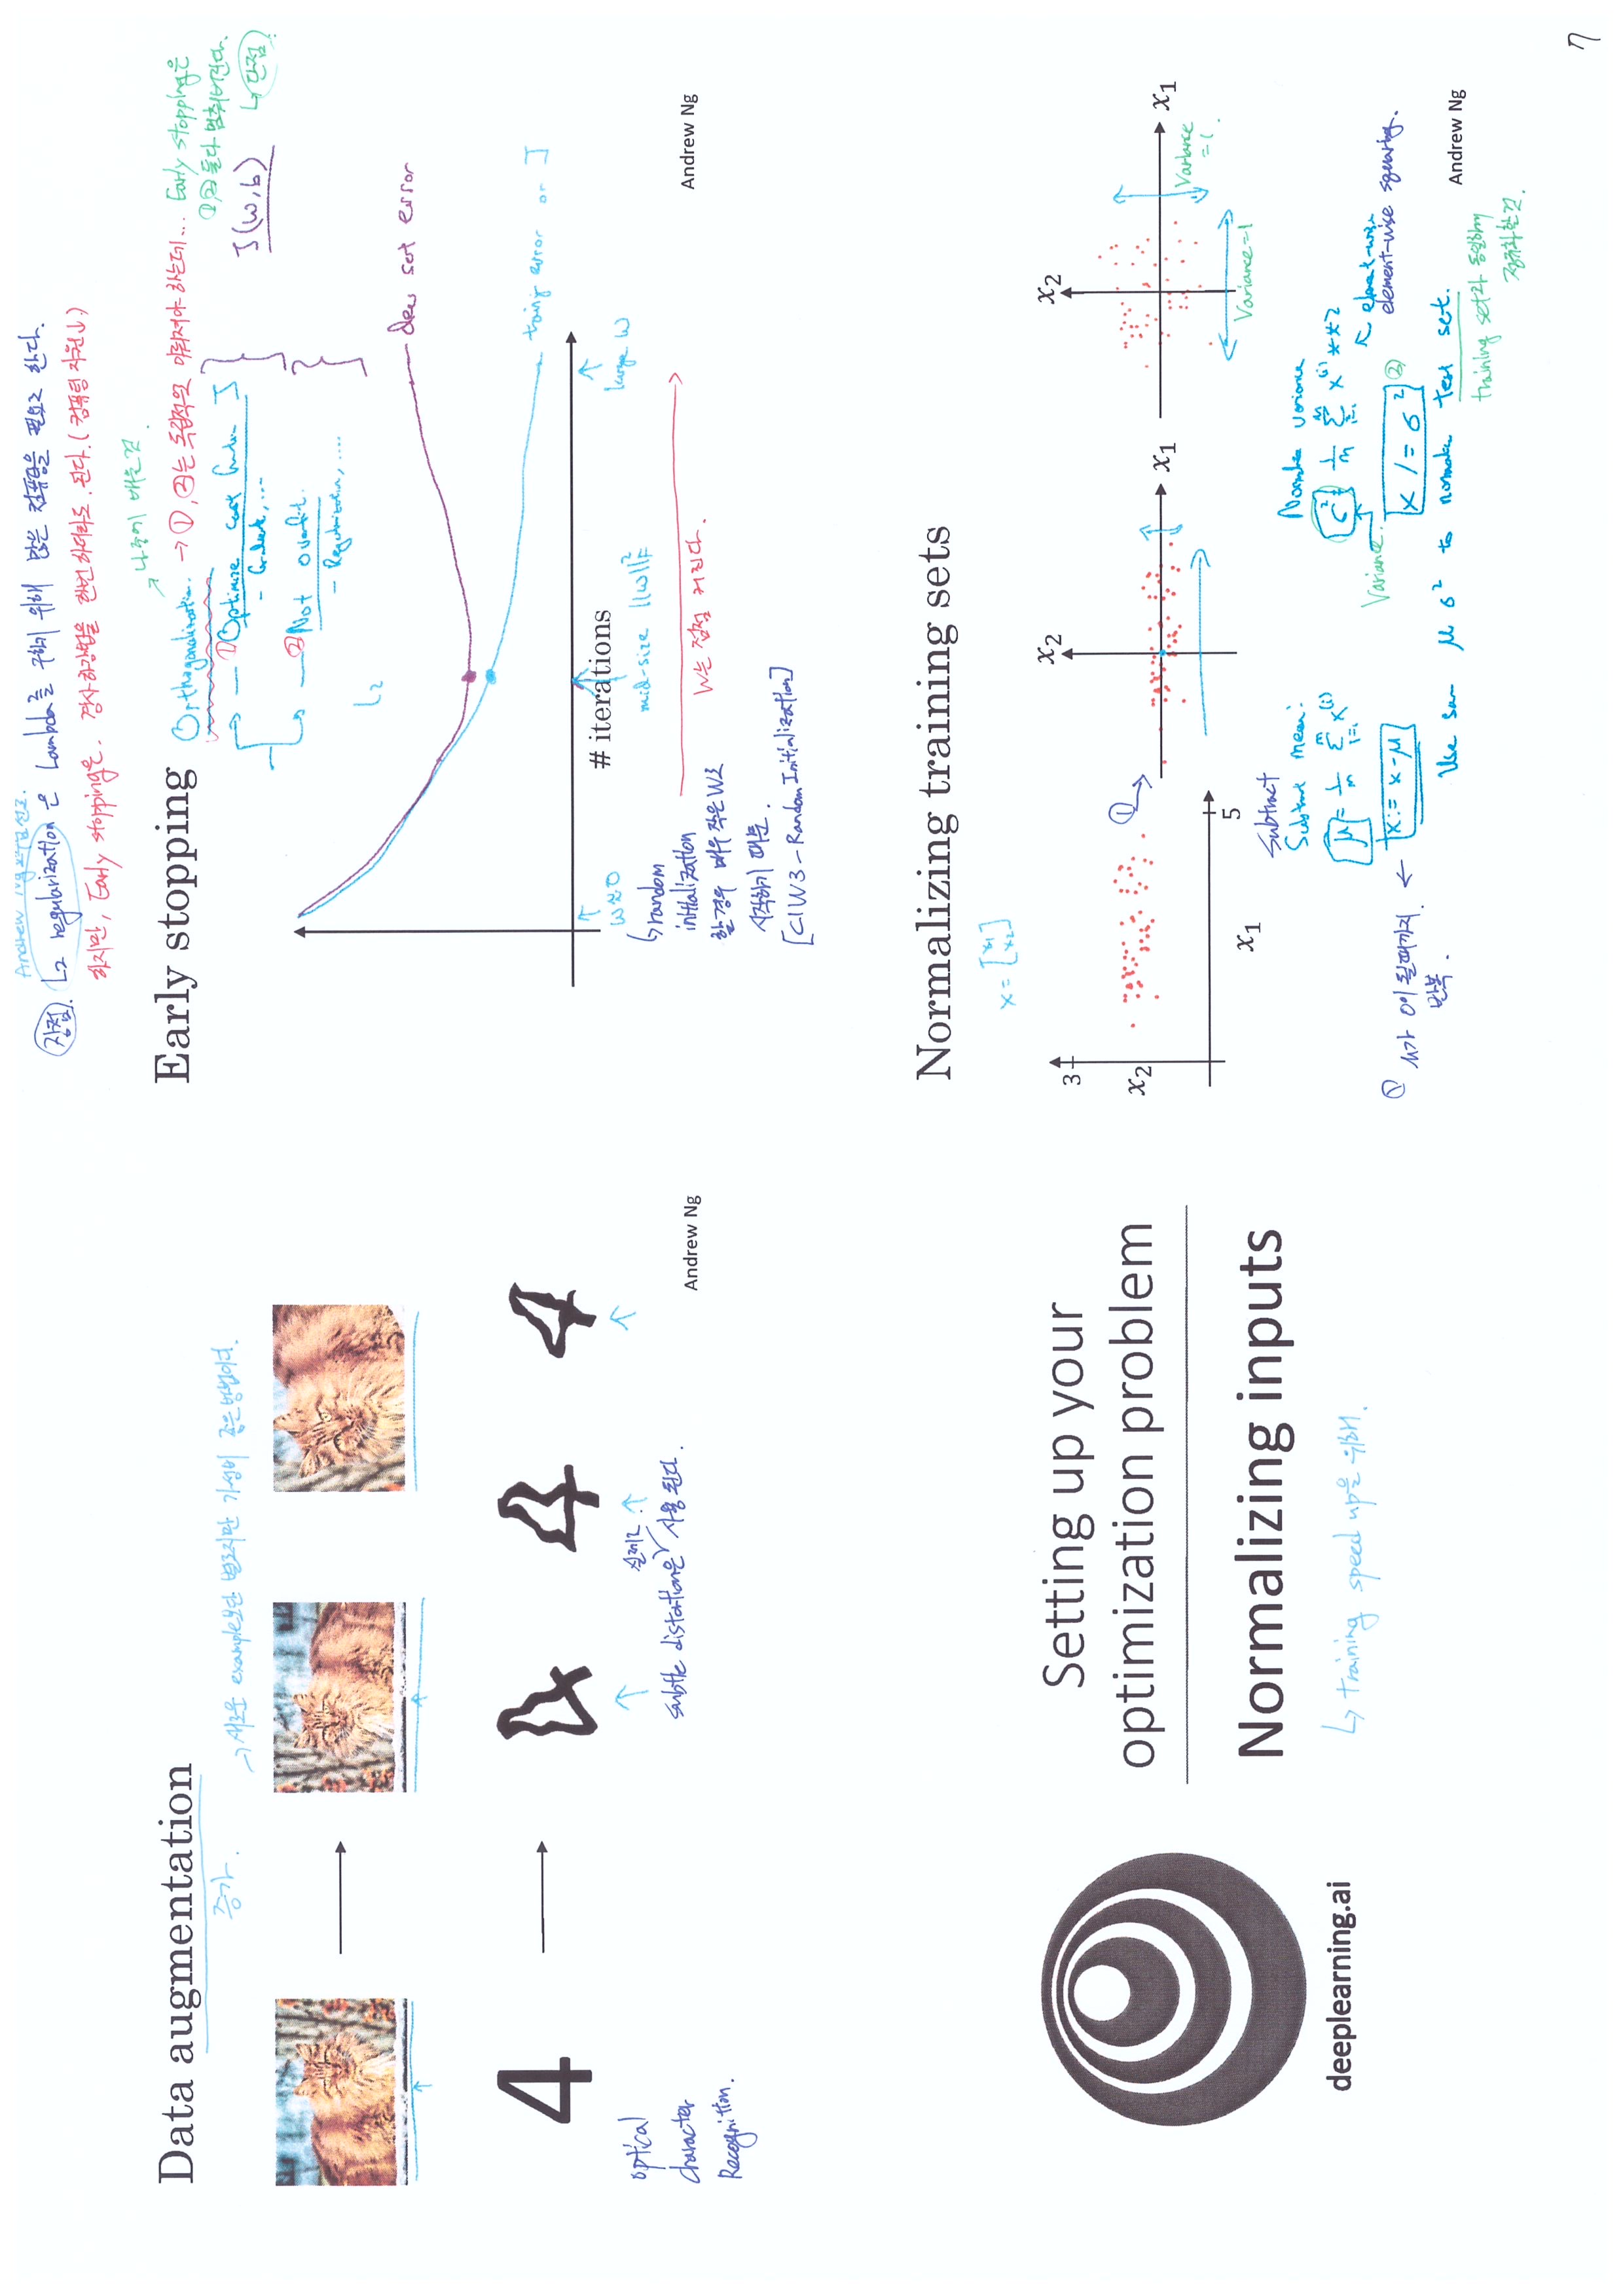 Data augmentation
증가.
→ 새로운 example보단 별로지만 가성비 좋은 방법이다.
4
4 4 4
optical
character
Recognition.
실제로
subtle distortion은 사용 된다.
Andrew Ng
Andrew Ng 교수님 선호.
장점. L2 regularization은 Lambda를 구하기 위해 많은 컴퓨팅을 필요로 한다.
하지만, Early stopping은. 경사하강법을 한번 하더라도 된다. (컴퓨팅 자원↓)
나중에 배울것.
Early stopping
Orthogonalization. → ①, ②는 독립적으로 이뤄져야 하는데... Early stopping은
①,② 둘다 멈춰버린다.
↳ 단점.
① Optimize cost function J
- Gradient, ...
J(w,b)
② Not overfit.
- Regularization, ....
L2
dev set error
training error or J
# iterations
w≈0
mid-size ||w||²F
large w
↳ random
initialization
할경우 매우 작은 W로
시작하기 때문.
[C1W3 - Random Initialization]
W는 점점 커진다.
Andrew Ng
deeplearning.ai
Setting up your
optimization problem
Normalizing inputs
↳ training speed up을 위해.
Normalizing training sets
x = [x1 x2]
3
x2
x1
5
①
x2
x1
x2
x1
Variance
=1.
Variance=1
Subtract
Subtract mean:
μ = 1/m Σ i=1 m x(i)
x := x - μ
① μ가 0이 될때까지 ←
반복.
Normalize variance
σ² = 1/m Σ i=1 m x(i) **2
element-wise
Variance.
element-wise squaring.
x /= σ² ②
Use same μ σ² to normalize test set.
training set과 동일하게
정규화 할것.
Andrew Ng
7